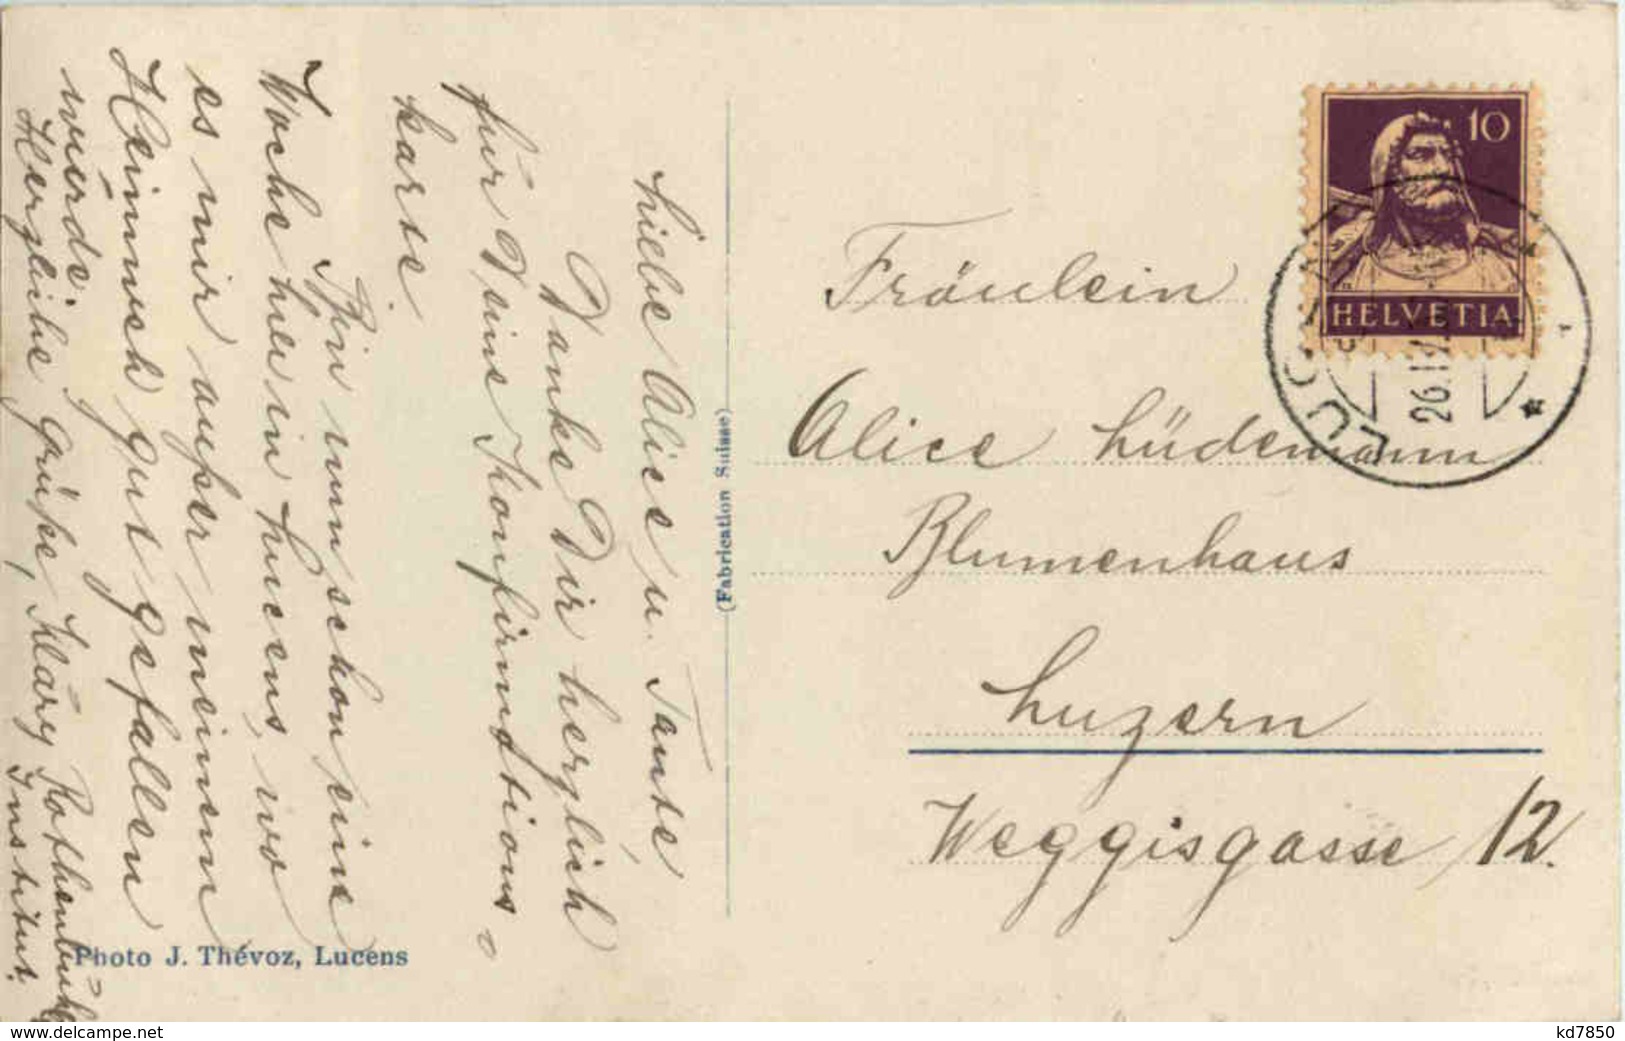 Liebe Alice u. Tante,
Danke Dir herzlich
für Deine Konfirmations-
karte.
Bin nun schon eine
Woche hier in Lucens, wo
es mir außer meinem
Heimweh gut gefallen
würde.
Herzliche Grüße, Kläry
Institut.
Photo J. Thévoz, Lucens
(Fabrication Suisse)
10
HELVETIA
LUCENS
26.IV.
Fräulein
Alice Lüdemann
Blumenhaus
Luzern
Weggisgasse 12.
www.delcampe.net
kd7850